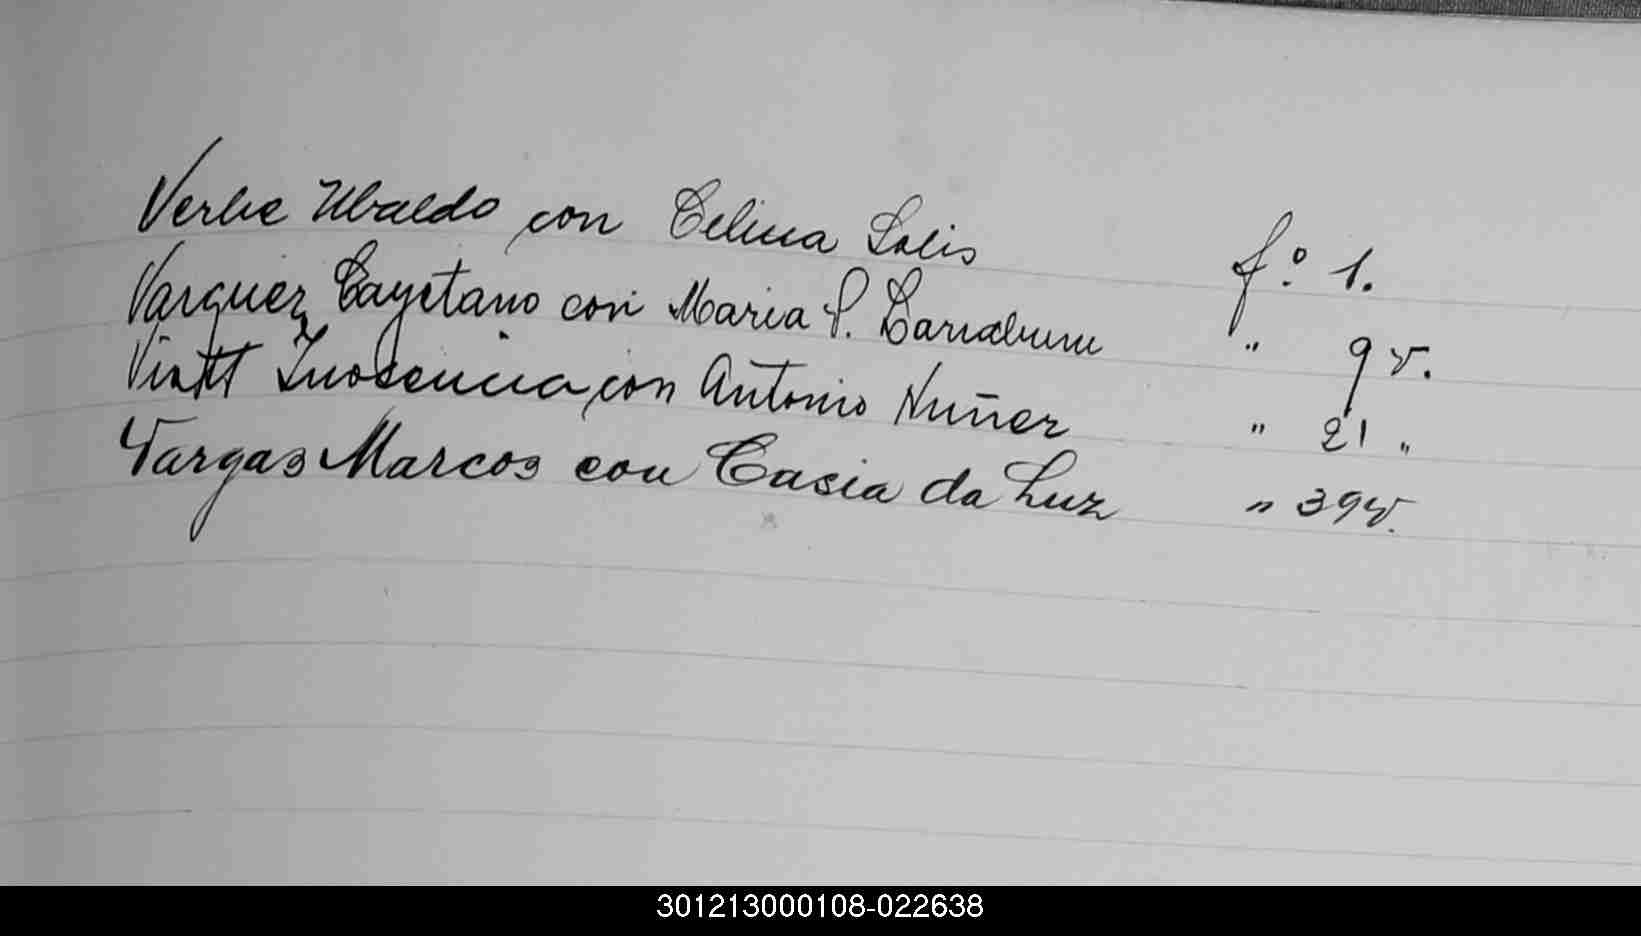 Verbe Ubaldo con Celina Solis f.º 1.
Varquez Cayetano con Maria S. Larraburu " 9 v.
Viatt Inocencia con Antonio Nuñez " 21 "
Vargas Marcos con Casia da Luz " 39 v.
301213000108-022638